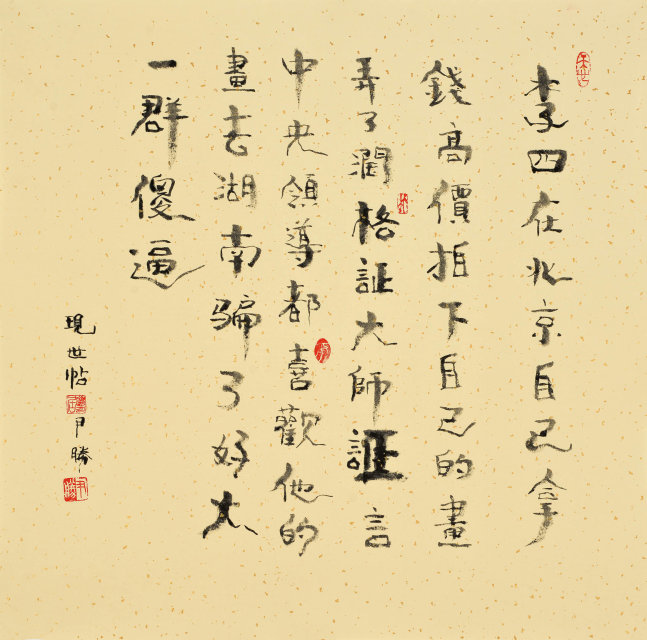 李四在北京自己拿
錢高價拍下自己的畫
弄了潤格証大師証言
中央領導都喜歡他的
畫去湖南騙了好大
一群傻逼
現世帖 尹勝